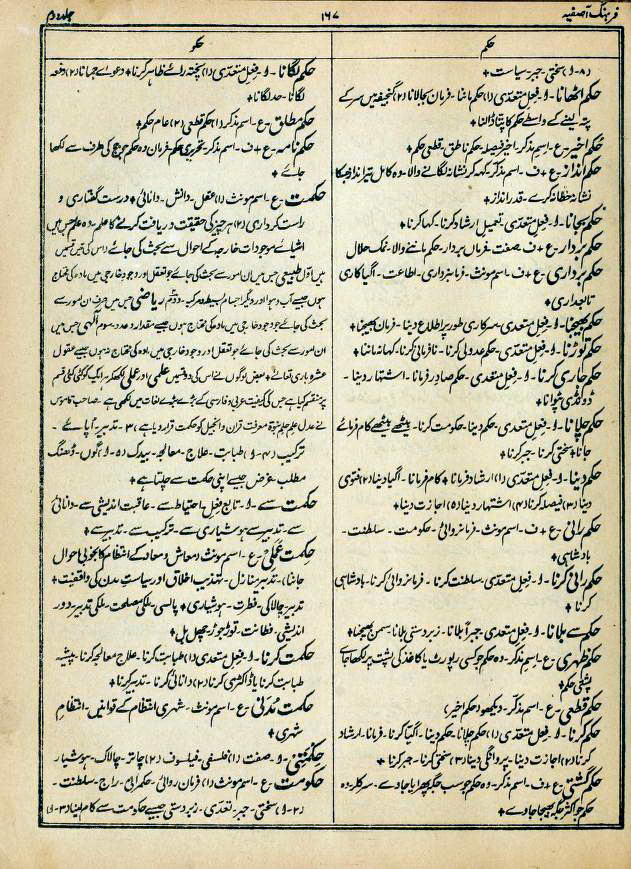 فرہنگ آصفیہ
۱۶۷
جلد دوم
حکم
(۸-و) سختی - جبر - سیاست +
حکم اٹھانا - و - فعل متعدّی (۱) حکم ماننا - فرمان بجالانا (۲) گنجیفہ میں سر کے
پتہ لینے کے واسطے حکم کا پتا ڈالنا +
حکم اخیر - ع - اسم مذکر - اخیر فیصلہ - حکم ناطق - قطعی حکم +
حکم انداز - ع + ف - اسم مذکر - کہہ کر نشانہ لگانے والا - وہ کامل تیر انداز جسکا
نشانہ خطا نہ کرے - قدر انداز +
حکم بجانا - و - فعل متعدی - تعمیل ارشاد کرنا - کہا کرنا +
حکم بردار - ع + ف - صفت - فرماں بردار - حکم ماننے والا - نمک حلال
حکم برداری - ع + ف - اسم مونث - فرمانبرداری - اطاعت - آگیا کاری
تابعداری +
حکم بھیجنا - و - فعل متعدی - سرکاری طور پر اطلاع دینا - فرمان بھیجنا +
حکم توڑنا - و - فعل متعدی - حکم عدولی کرنا - نافرمانی کرنا - کہا نہ ماننا +
حکم جاری کرنا - و - فعل متعدی - حکم صادر فرمانا - اشتہار دینا -
ڈونڈی پٹوانا +
حکم چلانا - و - فعل متعدی - حکم دینا - حکومت کرنا - بیٹھے بیٹھے کام فرمائے
جانا + سختی کرنا - جبر کرنا +
حکم دینا - و - فعل متعدّی (۱) ارشاد فرمانا + کام فرمانا - آگیا دینا (۲) فتویٰ
دینا (۳) فیصلہ کرنا (۴) اشتہار دینا (۵) اجازت دینا +
حکم رانی - ع + ف - اسم مونث - فرمانروائی - حکومت - سلطنت -
بادشاہی +
حکم رانی کرنا - و - فعل متعدّی - سلطنت کرنا - فرمانروائی کرنا - بادشاہی
کرنا +
حکم سے بلانا - و - فعل متعدّی - جبراً بلانا - زبردستی بلانا - سمن بھیجنا +
حکم ظہری - ع - اسم مذکر - وہ حکم جو کسی رپورٹ یا کاغذ کی پشت پر لکھا جائے
پشتی حکم +
حکم قطعی - ع - اسم مذکر - دیکھو (حکم اخیر)
حکم کرنا - و - فعل متعدی (۱) حکم چلانا - حکم دینا - آگیا کرنا - فرمانا - ارشاد
کرنا (۲) اجازت دینا - پروانگی دینا (۳) سختی کرنا - جبر کرنا +
حکم گشتی - ع + ف - اسم مذکر - وہ حکم جو سب جگہ پھرایا جاوے - سرکلر - وہ
حکم جو اکثر جگہ بھیجا جاوے +
حکو
حکم لگانا - و - فعل متعدّی (۱) پختہ رائے ظاہر کرنا + دعوے جمانا (۲) دفعہ
لگانا - حد لگانا +
حکم مطلق - ع - اسم مذکر (۱) حکم قطعی (۲) عام حکم +
حکم نامہ - ع + ف - اسم مذکر - تحریری حکم - فرمان وہ حکم جو پنچ کی طرف سے لکھا
جائے +
حکمت - ع - اسم مونث (۱) عقل - دانش - دانائی + درست گفتاری و
راست کرداری (۲) ہر چیز کی حقیقت دریافت کرنے کا علم - وہ علم جس میں
اشیائے موجودات خارجیہ کے احوال سے بحث کی جائے (اس کی تین قسمیں
ہیں اوّل طبیعی جس میں ان امور سے بحث کی جائے جو تعقل اور وجود خارجی میں مادہ کی محتاج
ہوں جیسے آب و ہوا اور دیگر اجسام بسیط و مرکبہ - دوّم ریاضی جس میں صرف ان امور سے
بحث کی جائے جو وجود خارجی میں مادہ کی محتاج ہوں جیسے مقدار و عدد - سوم الٰہی جس میں
ان امور سے بحث کی جائے جو تعقل اور وجود خارجی میں مادہ کی محتاج نہ ہوں جیسے عقول
عشرہ باری تعالےٰ + بعض لوگوں نے اس کی دو قسمیں علمی اور عملی لکھکر ہر ایک کو کئی کئی قسم
پر منقسم کیا ہے جس کی کیفیت عربی و فارسی کے بڑے بڑے لغات میں لکھی ہے - صاحب قاموس
نے عدل علم حلم نبوت معرفت قرآن و انجیل کو حکمت قرار دیا ہے) (۳) - تدبیر - اپائے -
ترکیب (۴ - و) طبابت - علاج - معالجہ - بیدک (۵ - و) گوں - ڈھنگ
مطلب غرض جیسے اپنی حکمت سے چلتا ہے +
حکمت سے - و - تابع فعل - احتیاط سے - عاقبت اندیشی سے - دانائی
سے - تدبیر سے ہوشیاری سے - ترکیب سے - تدبیر سے +
حکمت عملی - ع - اسم مونث (معاش و معاد کے انتظام کا بخوبی احوال
جاننا) - تدبیر منازل - تہذیب اخلاق اور سیاست مدن کی واقفیت +
تدبیر چالاکی - فطرت - ہوشیاری + پالسی - ملکی مصلحت - ملکی تدبیر - دور
اندیشی - فطانت - توڑ جوڑ چھل بل +
حکمت کرنا - و - فعل متعدی (۱) طبابت کرنا - علاج معالجہ کرنا - پیشہ
طبابت کرنا یا ڈاکٹری کرنا (۲) دانائی کرنا - تدبیر کرنا +
حکمت مدنی - ع - اسم مونث - شہری انتظام کے قوانین - انتظام
شہری +
حکمتی - و - صفت (۱) فلسفی - فیلسوف (۲) چاتر - چالاک - ہوشیار
حکومت - ع - اسم مونث (۱) فرمان روائی - حکم رانی - راج - سلطنت -
(۲ - و) سختی - جبر - تعدّی - زبردستی جیسے حکومت سے کام لینا (۳ - و)